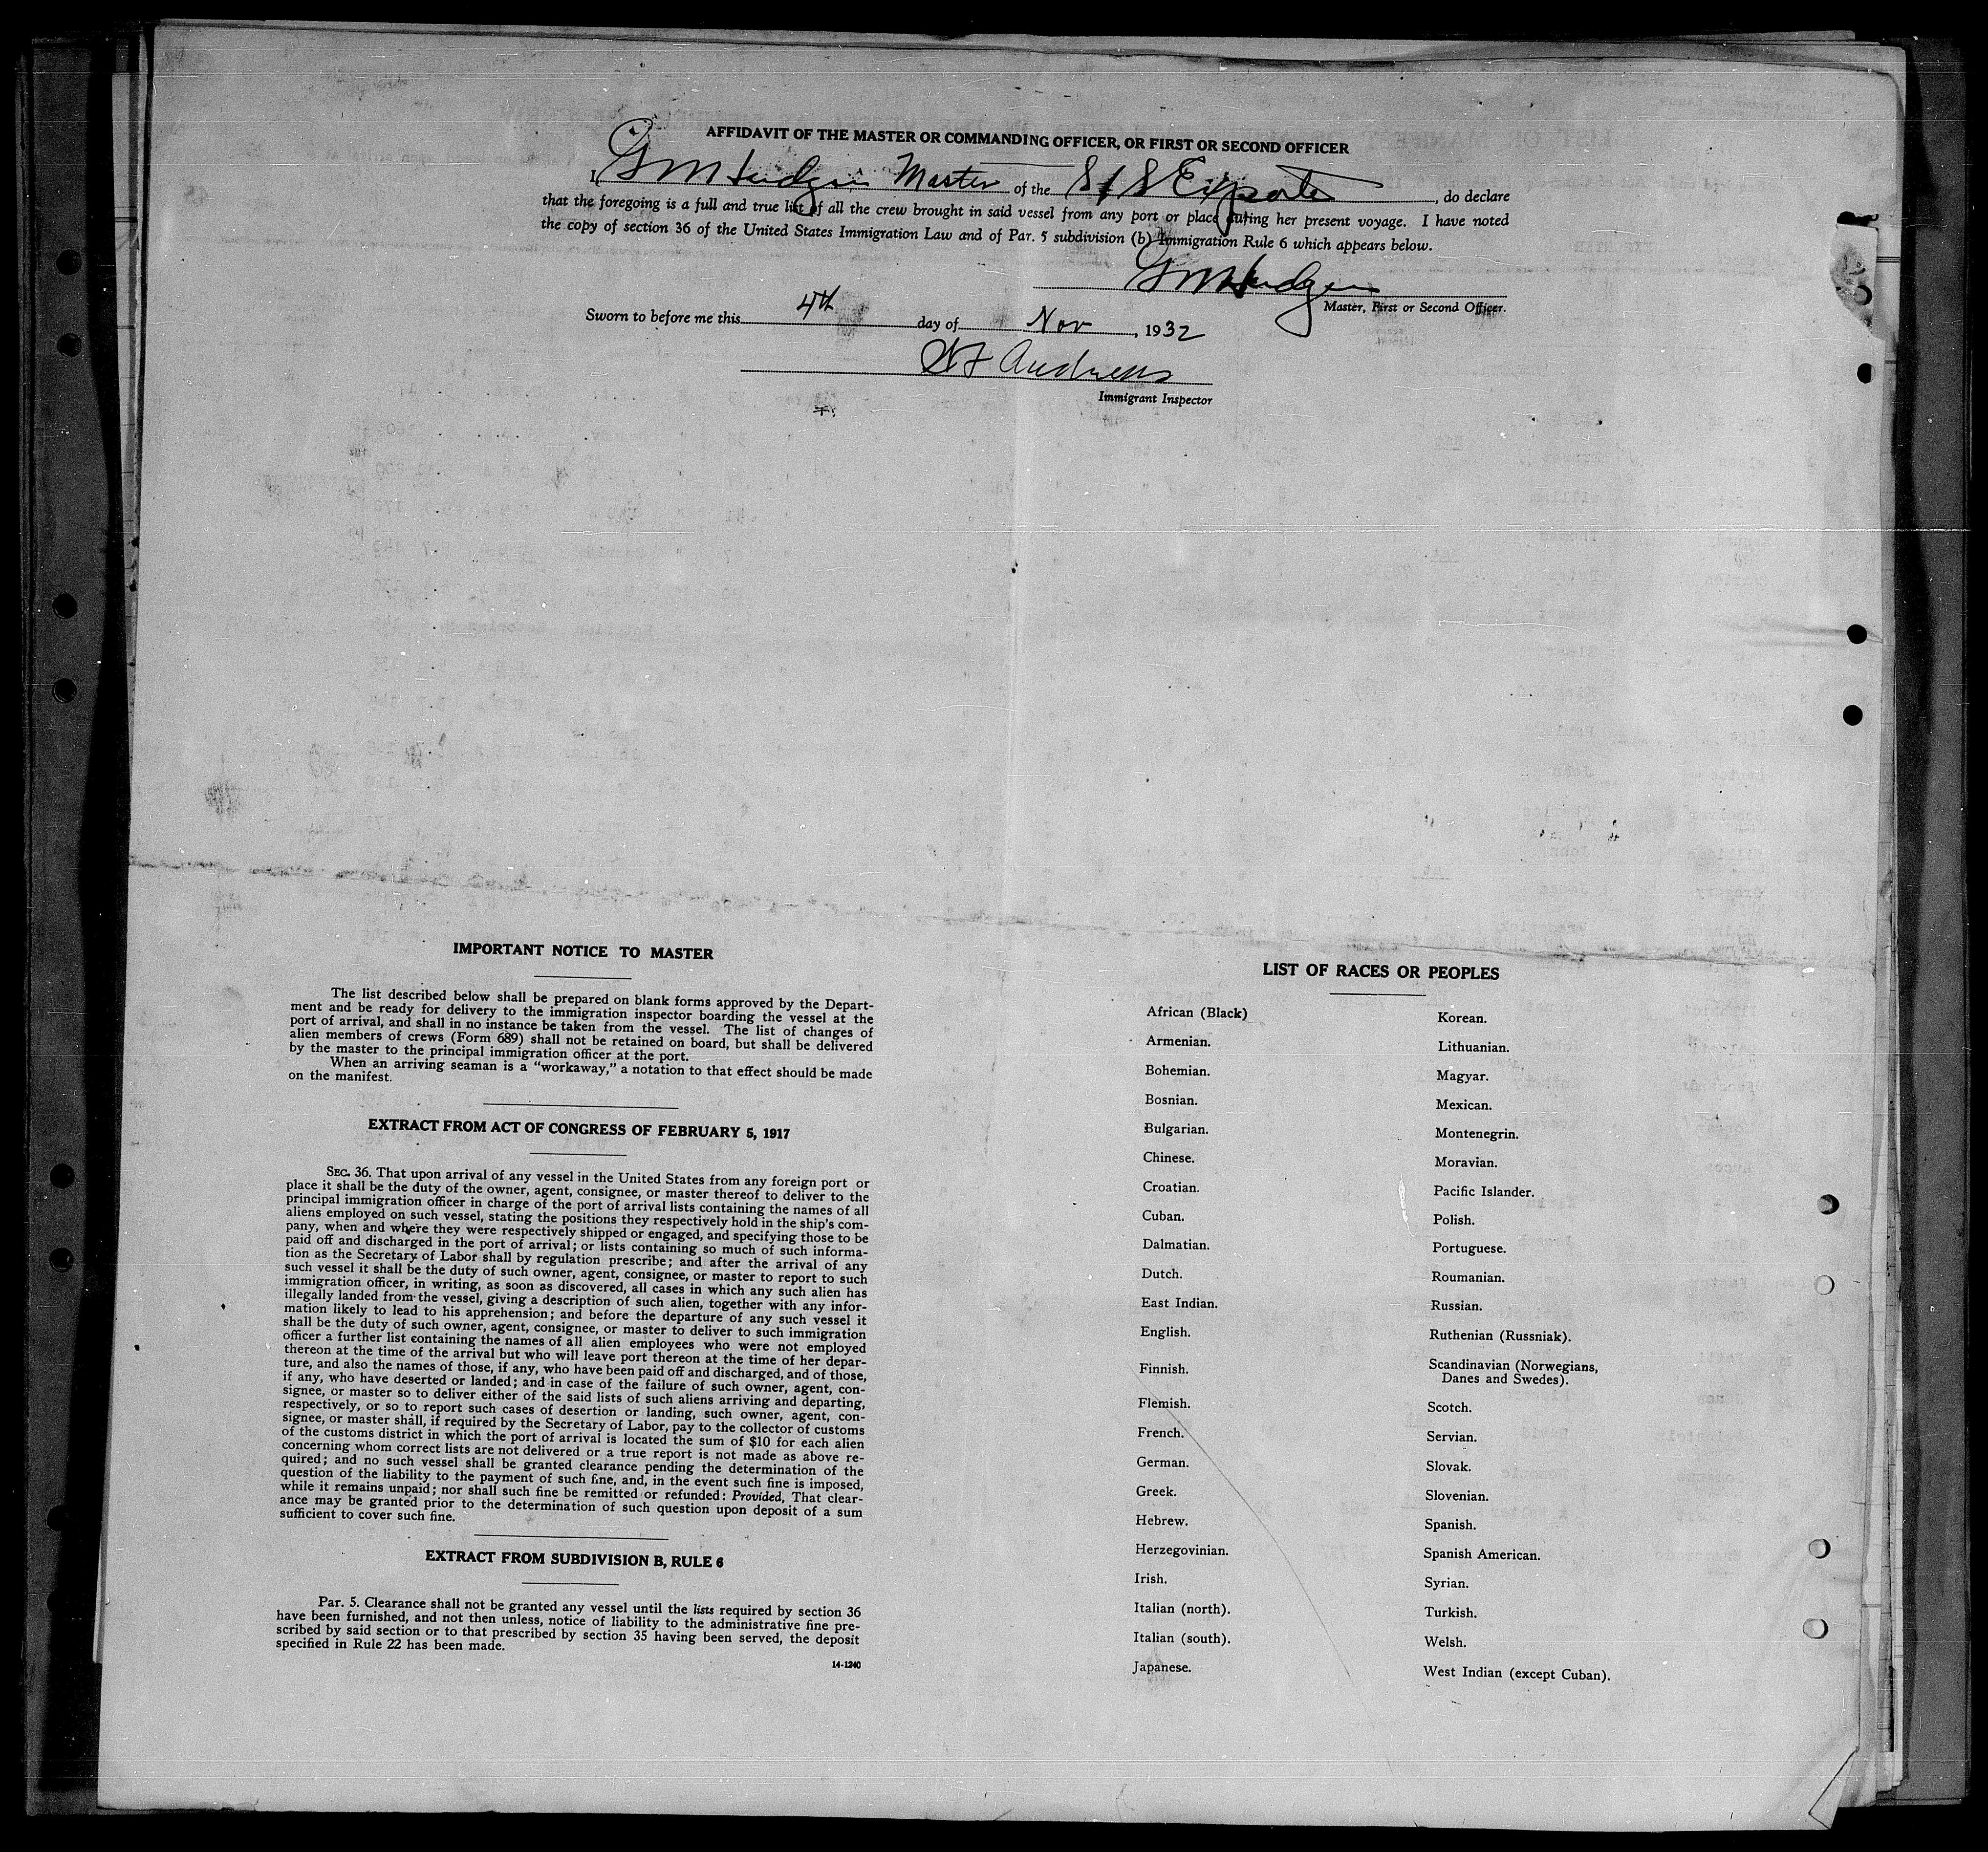 AFFIDAVIT OF THE MASTER OR COMMANDING OFFICER, OR FIRST OR SECOND OFFICER
I, G M Hudgin Master of the S/S Exporter, do declare
that the foregoing is a full and true list of all the crew brought in said vessel from any port or place during her present voyage. I have noted
the copy of section 36 of the United States Immigration Law and of Par. 5 subdivision (b) Immigration Rule 6 which appears below.
G M Hudgin
Master, First or Second Officer.
Sworn to before me this 4th day of Nov, 1932
Andrews
Immigrant Inspector
IMPORTANT NOTICE TO MASTER
The list described below shall be prepared on blank forms approved by the Depart-
ment and be ready for delivery to the immigration inspector boarding the vessel at the
port of arrival, and shall in no instance be taken from the vessel. The list of changes of
alien members of crews (Form 689) shall not be retained on board, but shall be delivered
by the master to the principal immigration officer at the port.
When an arriving seaman is a "workaway," a notation to that effect should be made
on the manifest.
EXTRACT FROM ACT OF CONGRESS OF FEBRUARY 5, 1917
SEC. 36. That upon arrival of any vessel in the United States from any foreign port or
place it shall be the duty of the owner, agent, consignee, or master thereof to deliver to the
principal immigration officer in charge of the port of arrival lists containing the names of all
aliens employed on such vessel, stating the positions they respectively hold in the ship's com-
pany, when and where they were respectively shipped or engaged, and specifying those to be
paid off and discharged in the port of arrival; or lists containing so much of such informa-
tion as the Secretary of Labor shall by regulation prescribe; and after the arrival of any
such vessel it shall be the duty of such owner, agent, consignee, or master to report to such
immigration officer, in writing, as soon as discovered, all cases in which any such alien has
illegally landed from the vessel, giving a description of such alien, together with any infor-
mation likely to lead to his apprehension; and before the departure of any such vessel it
shall be the duty of such owner, agent, consignee, or master to deliver to such immigration
officer a further list containing the names of all alien employees who were not employed
thereon at the time of the arrival but who will leave port thereon at the time of her depar-
ture, and also the names of those, if any, who have been paid off and discharged, and of those,
if any, who have deserted or landed; and in case of the failure of such owner, agent, con-
signee, or master so to deliver either of the said lists of such aliens arriving and departing,
respectively, or so to report such cases of desertion or landing, such owner, agent, con-
signee, or master shall, if required by the Secretary of Labor, pay to the collector of customs
of the customs district in which the port of arrival is located the sum of $10 for each alien
concerning whom correct lists are not delivered or a true report is not made as above re-
quired; and no such vessel shall be granted clearance pending the determination of the
question of the liability to the payment of such fine, and, in the event such fine is imposed,
while it remains unpaid; nor shall such fine be remitted or refunded: Provided, That clear-
ance may be granted prior to the determination of such question upon deposit of a sum
sufficient to cover such fine.
EXTRACT FROM SUBDIVISION B, RULE 6
Par. 5. Clearance shall not be granted any vessel until the lists required by section 36
have been furnished, and not then unless, notice of liability to the administrative fine pre-
scribed by said section or to that prescribed by section 35 having been served, the deposit
specified in Rule 22 has been made.
14-1240
LIST OF RACES OR PEOPLES
African (Black)
Armenian.
Bohemian.
Bosnian.
Bulgarian.
Chinese.
Croatian.
Cuban.
Dalmatian.
Dutch.
East Indian.
English.
Finnish.
Flemish.
French.
German.
Greek.
Hebrew.
Herzegovinian.
Irish.
Italian (north).
Italian (south).
Japanese.
Korean.
Lithuanian.
Magyar.
Mexican.
Montenegrin.
Moravian.
Pacific Islander.
Polish.
Portuguese.
Roumanian.
Russian.
Ruthenian (Russniak).
Scandinavian (Norwegians,
Danes and Swedes).
Scotch.
Servian.
Slovak.
Slovenian.
Spanish.
Spanish American.
Syrian.
Turkish.
Welsh.
West Indian (except Cuban).